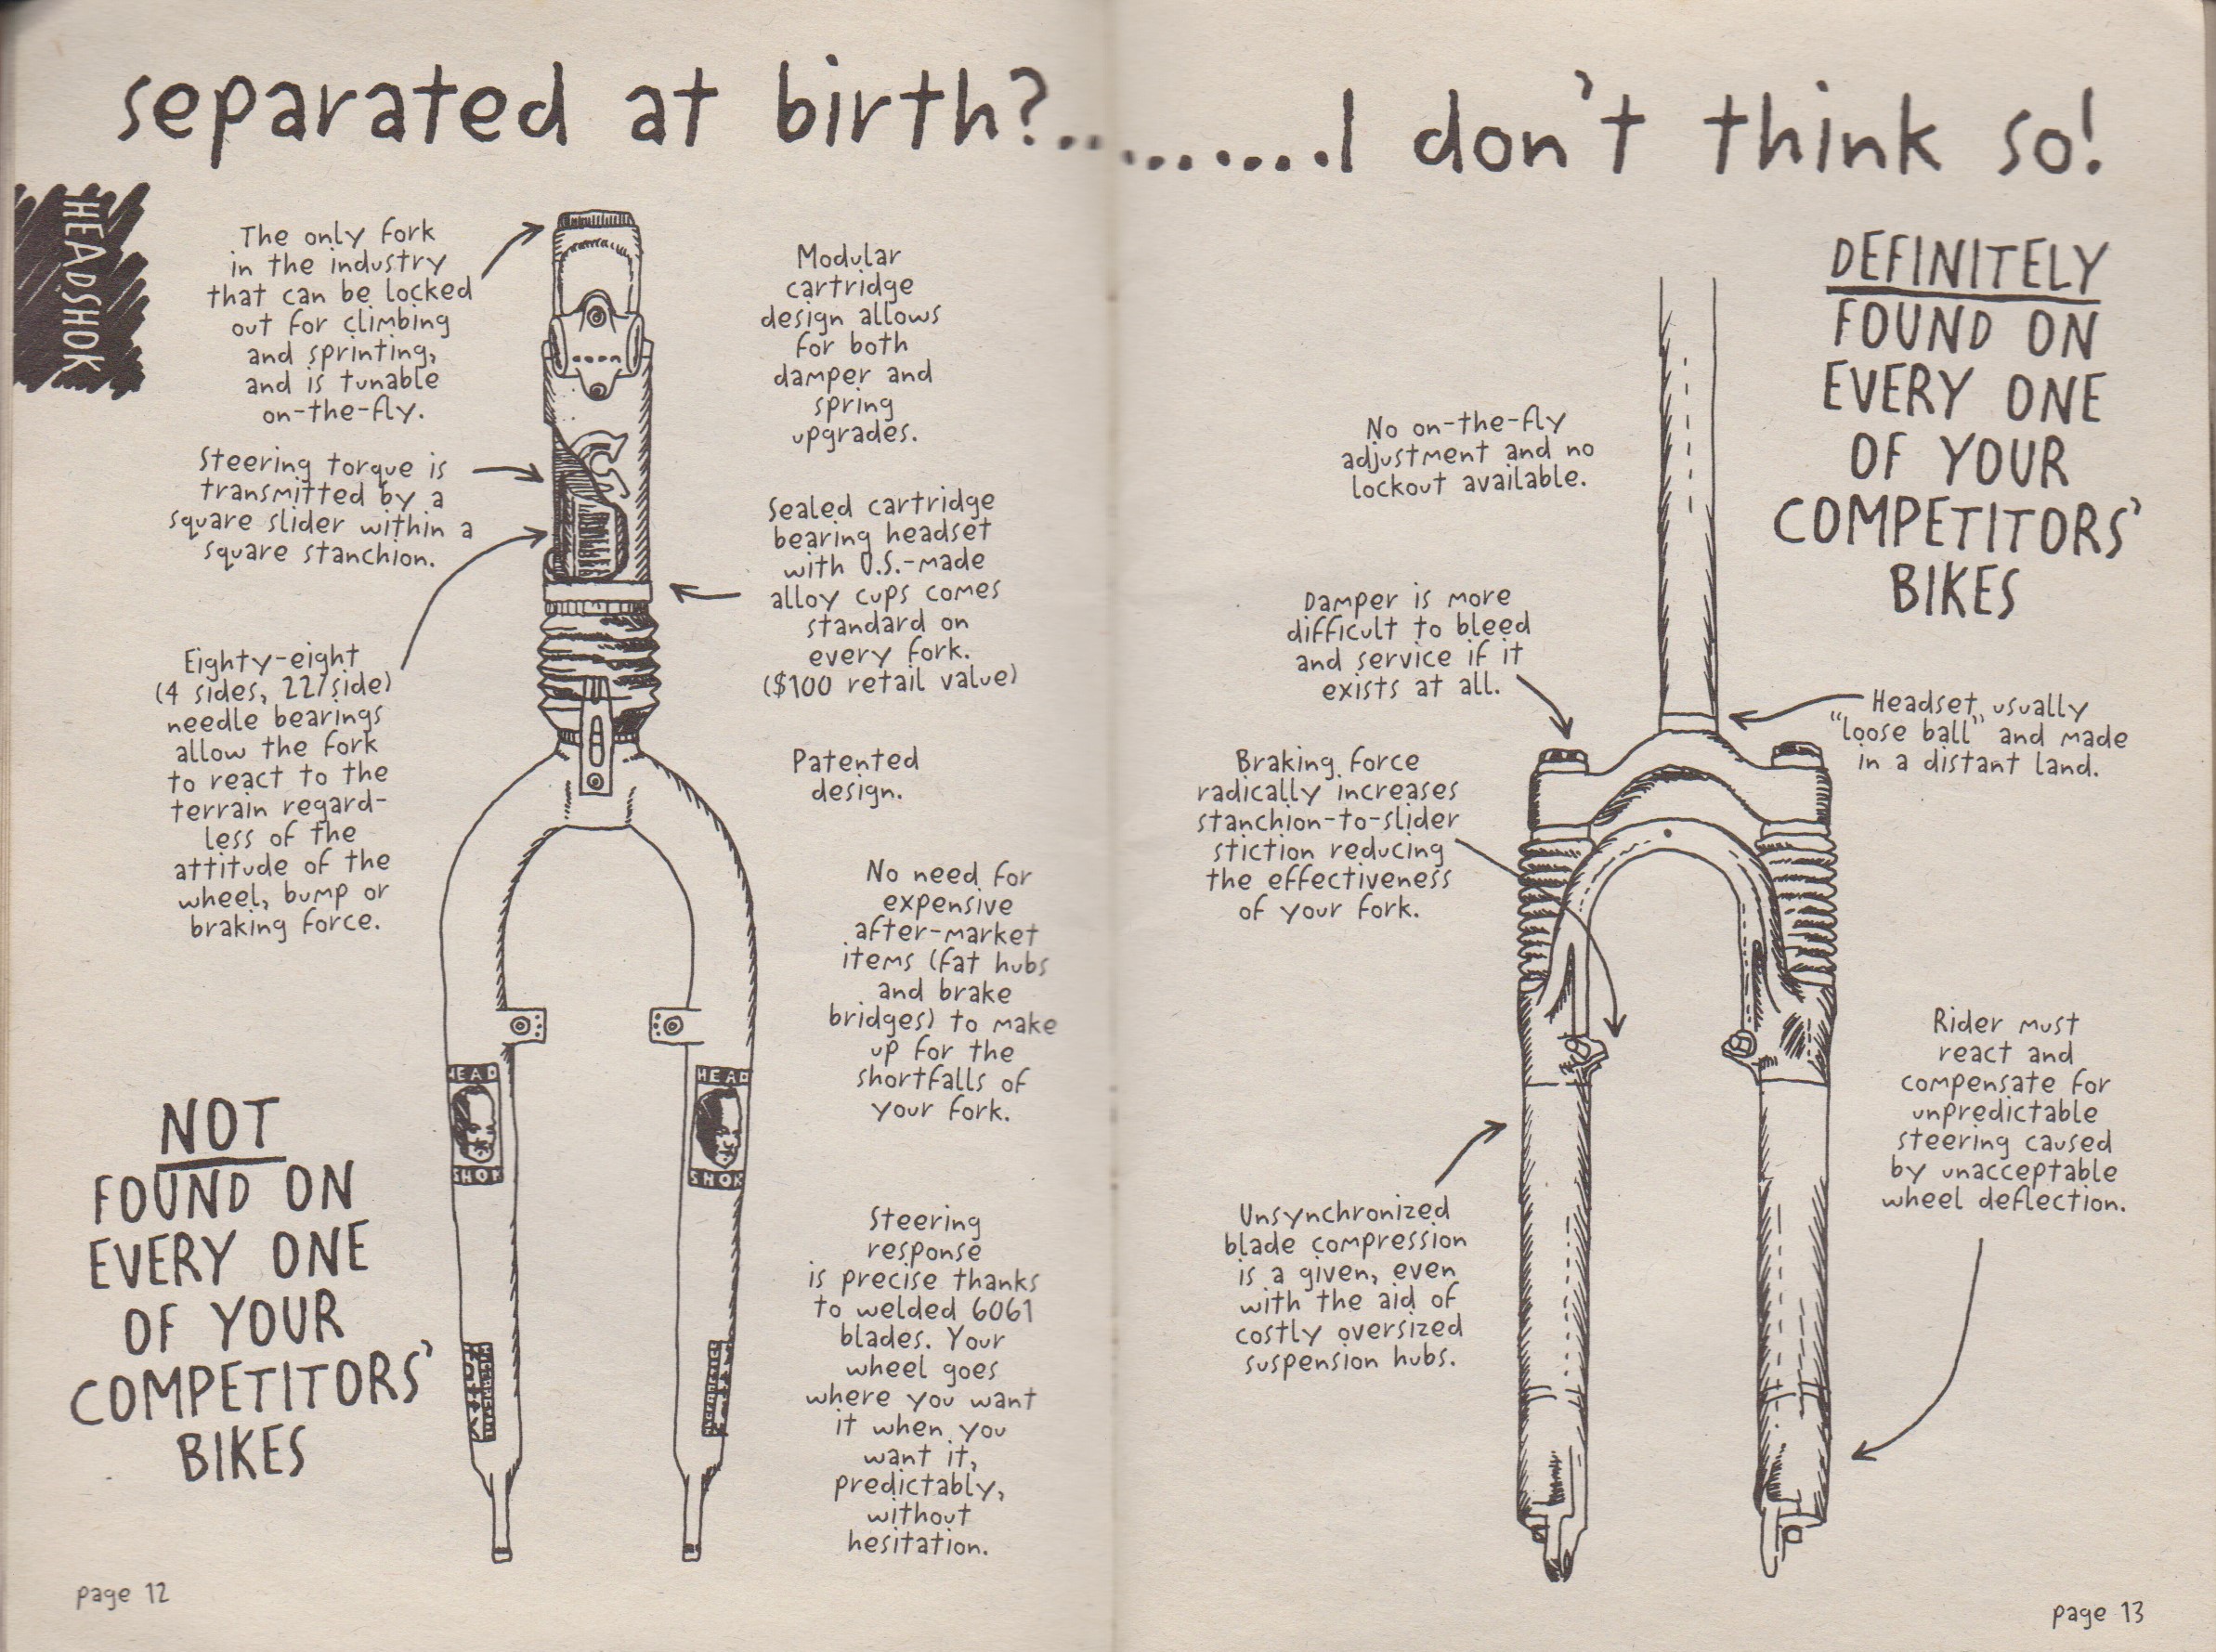 separated at birth?..........I don't think so!
HEADSHOK
The only fork
in the industry
that can be locked
out for climbing
and sprinting,
and is tunable
on-the-fly.
Steering torque is
transmitted by a
square slider within a
square stanchion.
Eighty-eight
(4 sides, 22/side)
needle bearings
allow the fork
to react to the
terrain regard-
less of the
attitude of the
wheel, bump or
braking force.
NOT
FOUND ON
EVERY ONE
OF YOUR
COMPETITORS'
BIKES
HEAD
SHOK
HEAD
SHOK
Modular
cartridge
design allows
for both
damper and
spring
upgrades.
Sealed cartridge
bearing headset
with U.S.-made
alloy cups comes
standard on
every fork.
($100 retail value)
Patented
design.
No need for
expensive
after-market
items (fat hubs
and brake
bridges) to make
up for the
shortfalls of
your fork.
Steering
response
is precise thanks
to welded 6061
blades. Your
wheel goes
where you want
it when you
want it,
predictably,
without
hesitation.
page 12
No on-the-fly
adjustment and no
lockout available.
Damper is more
difficult to bleed
and service if it
exists at all.
Braking force
radically increases
stanchion-to-slider
stiction reducing
the effectiveness
of your fork.
Unsynchronized
blade compression
is a given, even
with the aid of
costly oversized
suspension hubs.
DEFINITELY
FOUND ON
EVERY ONE
OF YOUR
COMPETITORS'
BIKES
Headset, usually
"loose ball" and made
in a distant land.
Rider must
react and
compensate for
unpredictable
steering caused
by unacceptable
wheel deflection.
page 13